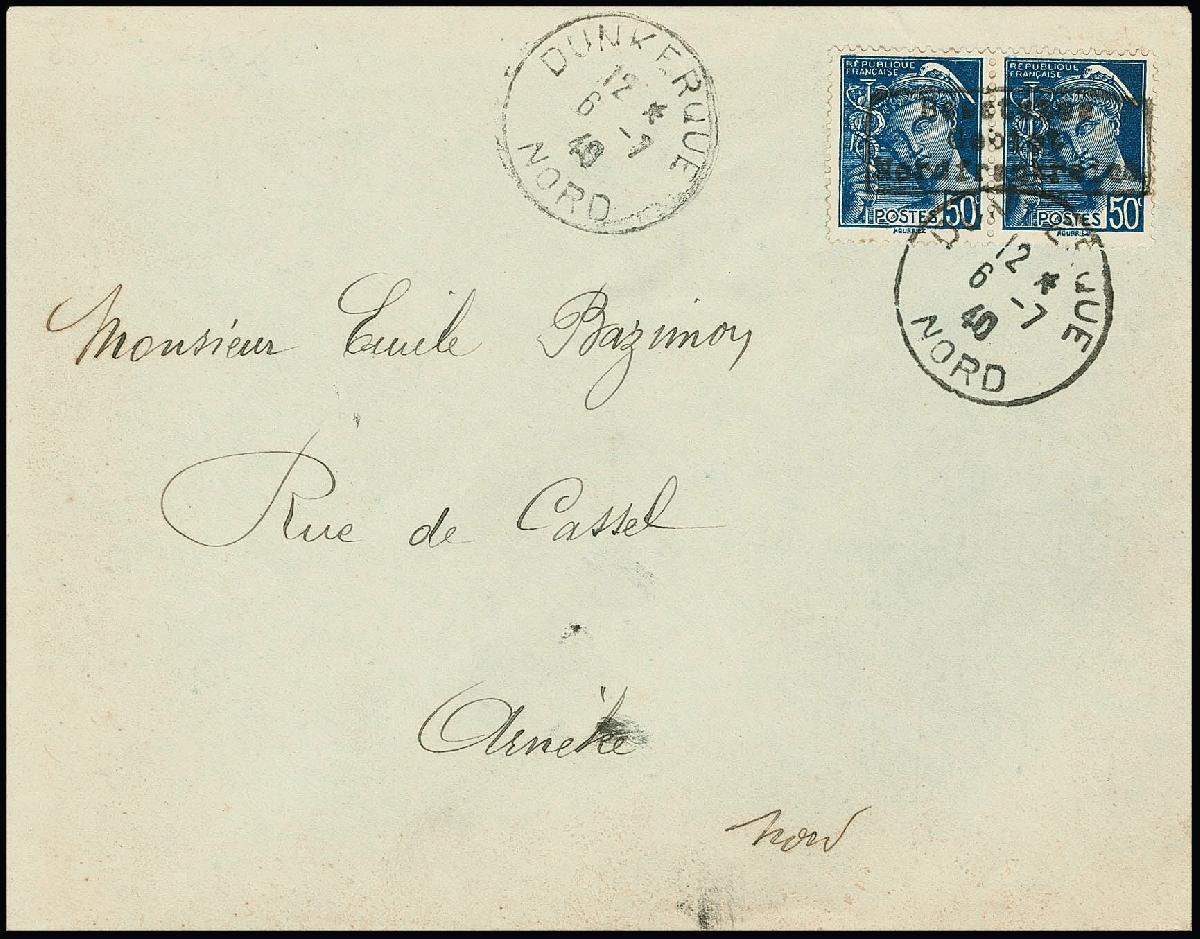 DUNKERQUE
12 *
6 -7
40
NORD
RÉPUBLIQUE
FRANÇAISE
POSTES 50c
RÉPUBLIQUE
FRANÇAISE
POSTES 50c
Besetztes
Gebiet
Nordfrankreich
DUNKERQUE
12 *
6 -7
40
NORD
Monsieur Emile Bazimon
Rue de Cassel
Arneke
Nord